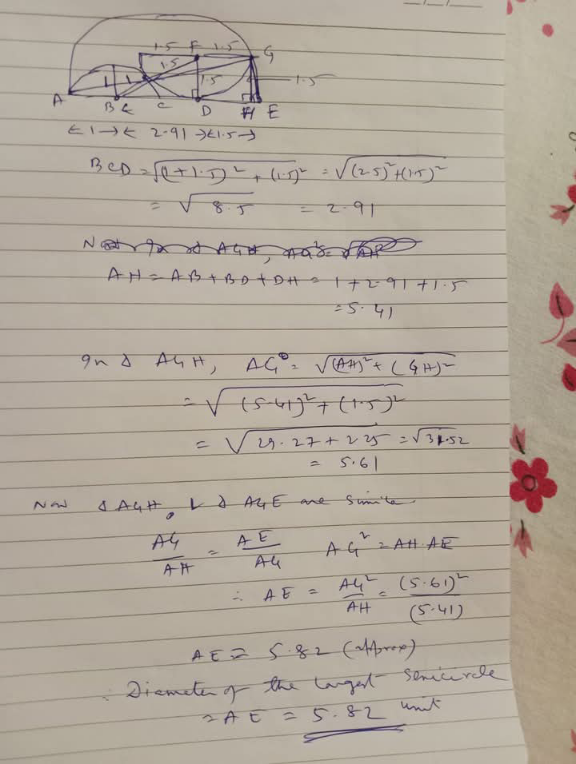 1.5 F 1.5 G
1.5
1 1 1.5 1.5
A B C D H E
← 1 → ← 2.91 → ← 1.5 →
BD = √(1+1.5)² + (1.5)² = √(2.5)²+(1.5)²
= √8.5 = 2.91
AH = AB + BD + DH = 1 + 2.91 + 1.5
= 5.41
In Δ AGH, AG = √(AH)² + (GH)²
= √(5.41)² + (1.5)²
= √29.27 + 2.25 = √31.52
= 5.61
Now Δ AGH, & Δ AGE are similar
AG/AH = AE/AG AG² = AH·AE
∴ AE = AG²/AH = (5.61)²/(5.41)
AE = 5.82 (approx)
∴ Diameter of the largest semicircle
= AE = 5.82 unit